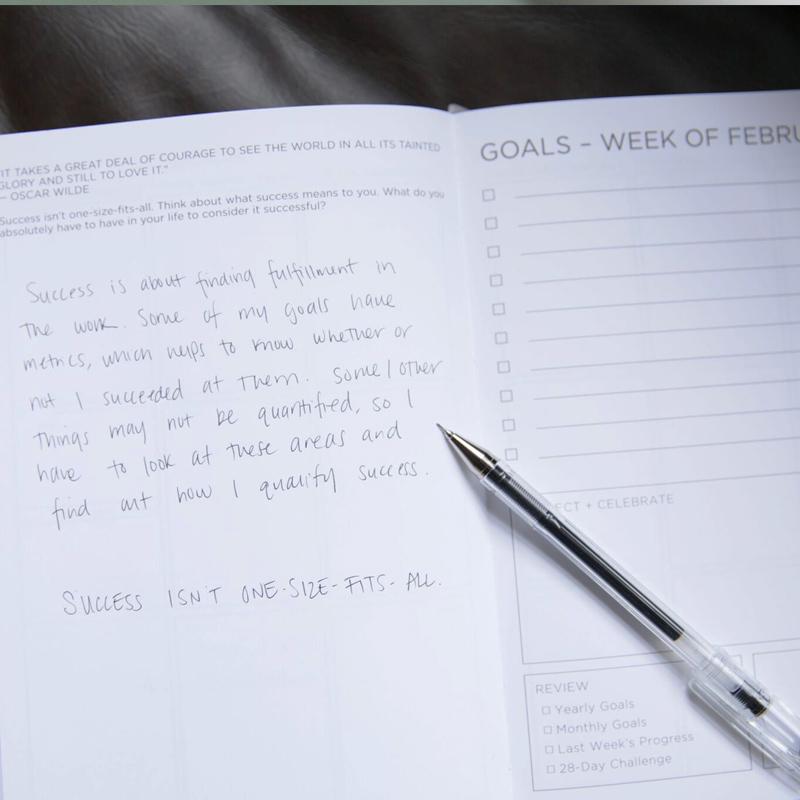 "IT TAKES A GREAT DEAL OF COURAGE TO SEE THE WORLD IN ALL ITS TAINTED
GLORY AND STILL TO LOVE IT."
— OSCAR WILDE
Success isn't one-size-fits-all. Think about what success means to you. What do you
absolutely have to have in your life to consider it successful?
Success is about finding fulfillment in
the work. Some of my goals have
metrics, which helps to know whether or
not I succeeded at them. Some/other
things may not be quantified, so I
have to look at these areas and
find out how I qualify success.
SUCCESS ISN'T ONE-SIZE-FITS-ALL.
GOALS – WEEK OF FEBRU
ECT + CELEBRATE
REVIEW
Yearly Goals
Monthly Goals
Last Week's Progress
28-Day Challenge